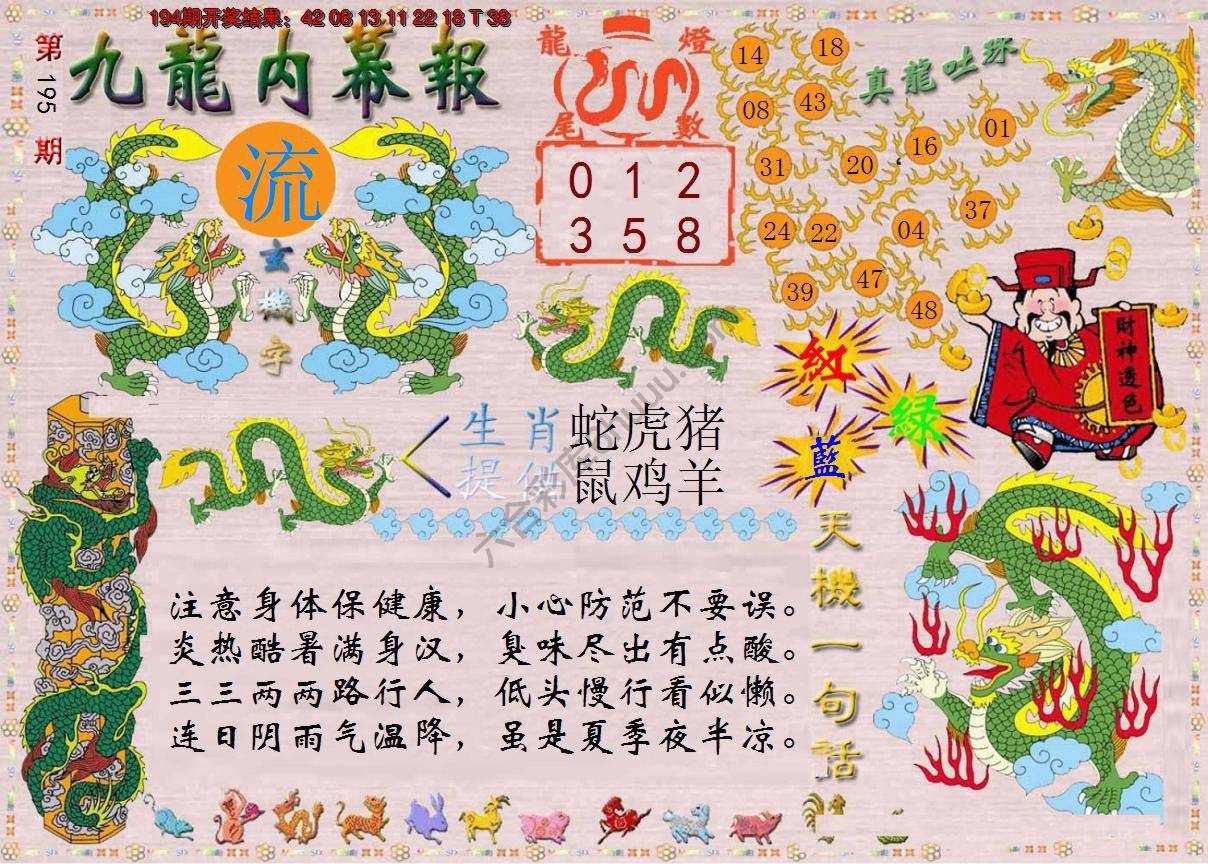 194期开奖结果：42 06 13 11 22 18 T 38
第195期
九龍内幕報
流
玄機字
龍燈
尾數
0 1 2
3 5 8
真龍吐珠
14
18
08
43
31
20
16
01
24
22
04
37
39
47
48
財神透色
紅
綠
藍
生肖 蛇虎猪
提供 鼠鸡羊
天機一句話
注意身体保健康，小心防范不要误。
炎热酷暑满身汉，臭味尽出有点酸。
三三两两路行人，低头慢行看似懒。
连日阴雨气温降，虽是夏季夜半凉。